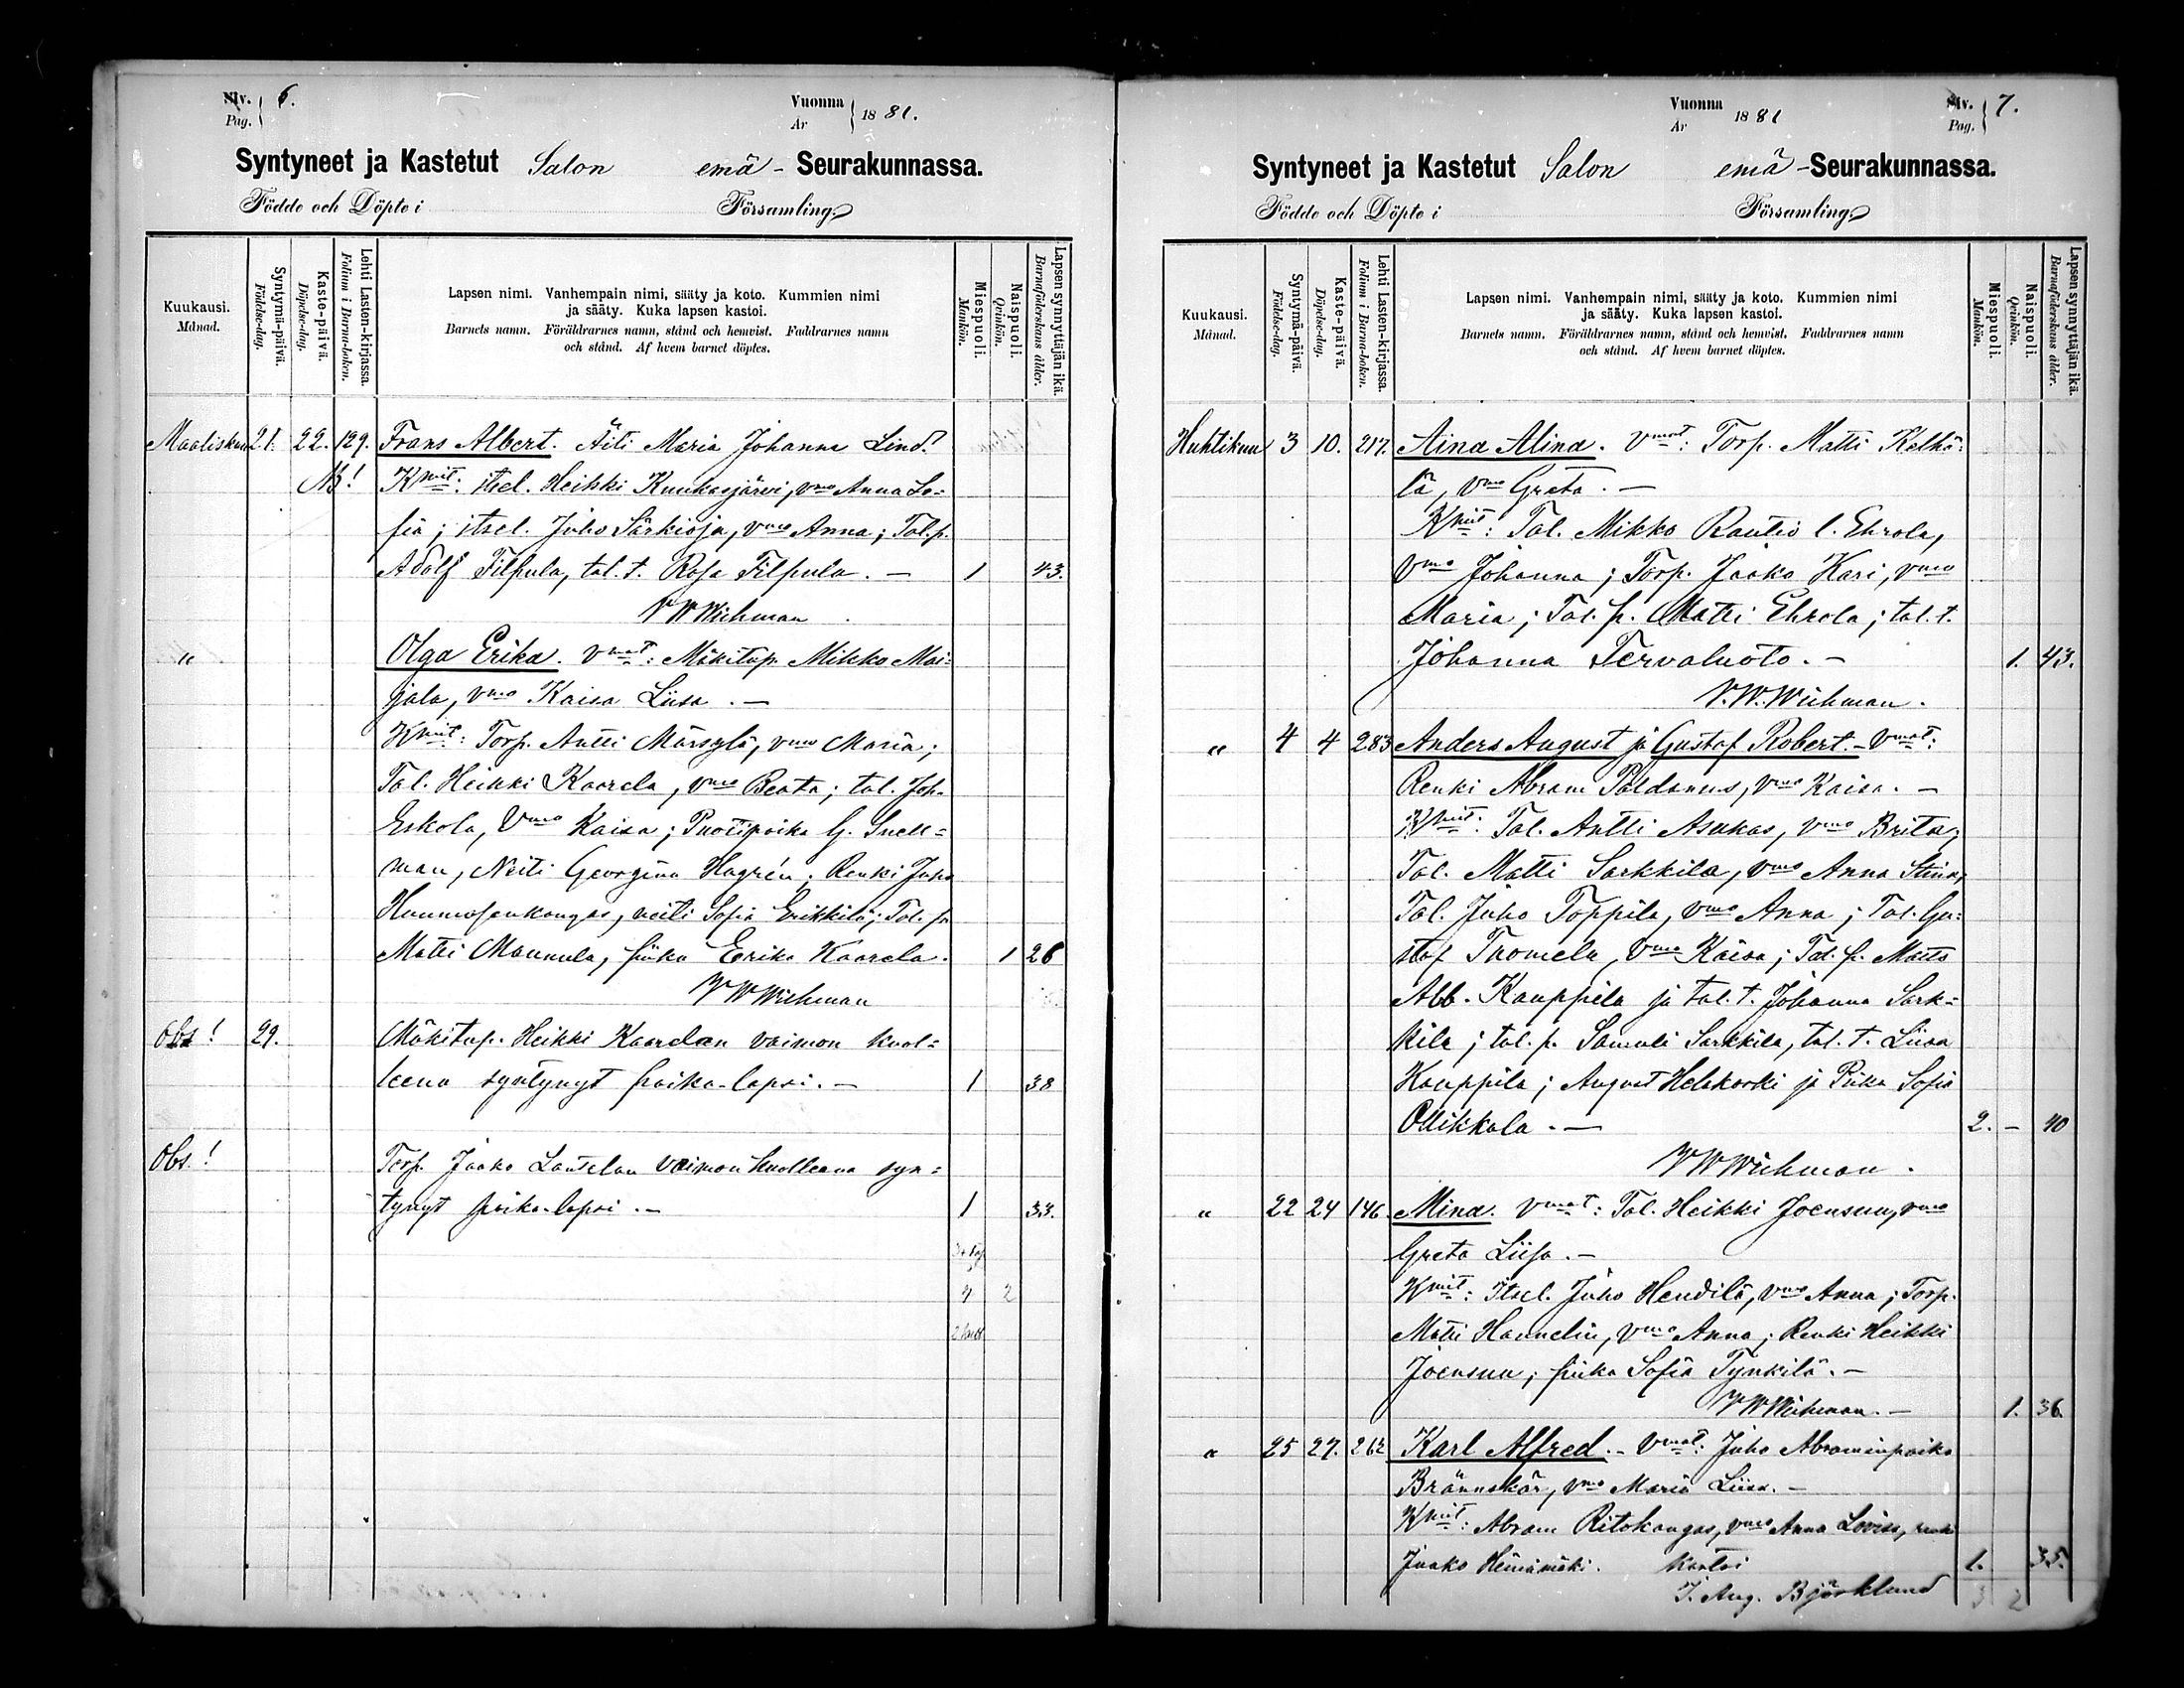 Siv. 6.
Pag.
Vuonna 1881.
År
Syntyneet ja Kastetut Salon emä-Seurakunnassa.
Födde och Döpte i Församling.
Kuukausi.
Månad.
Syntymä-päivä.
Födelse-dag.
Kaste-päivä.
Döpelse-dag.
Lehti Lasten-kirjassa.
Folium i Barna-boken.
Lapsen nimi. Vanhempain nimi, sääty ja koto. Kummien nimi
ja sääty. Kuka lapsen kastoi.
Barnets namn. Föräldrarnes namn, stånd och hemvist. Faddrarnes namn
och stånd. Af hvem barnet döptes.
Miespuoli.
Mankön.
Naispuoli.
Qvinkön.
Lapsen synnyttäjän ikä.
Barnaföderskans ålder.
Maaliskuu 21. 22. 129. Frans Albert. Äiti Maria Johanna Lind.
NB! Kmit: itsel. Heikki Kuukasjärvi, vmo Anna So-
fia; itsel. Juho Särkioja, vmo Anna; Tal. p.
Adolf Filpula, tal. t. Rosa Filpula. — 1 43.
V W Wichman
" Olga Erika. Vmat: Mäkitup. Mikko Mai-
jala, vmo Kaisa Liisa. —
Kmit: Torp. Antti Märsylä, vmo Maria;
Tal. Heikki Kaarela, vmo Beata; tal. Joh.
Eskola, Vmo Kaisa; Puotipoika G. Snell-
man, Neiti Georgina Hagrén; Renki Juho
neiti Sofia Erikkilä; Tal. p.
Matti Mannula, piika Erika Kaarela. 1 26
V W Wichman
Obs! 29. Mäkitup. Heikki Kaarelan vaimon kuol-
leena syntynyt poika-lapsi. — 1 38
Obs.! Torp. Jaako Lautelan vaimon kuolleena syn-
tynyt poika-lapsi. — 1 33.
4 2
Vuonna 1881
År
Siv. 7.
Pag.
Syntyneet ja Kastetut Salon emä-Seurakunnassa.
Födde och Döpte i Församling.
Kuukausi.
Månad.
Syntymä-päivä.
Födelse-dag.
Kaste-päivä.
Döpelse-dag.
Lehti Lasten-kirjassa.
Folium i Barna-boken.
Lapsen nimi. Vanhempain nimi, sääty ja koto. Kummien nimi
ja sääty. Kuka lapsen kastoi.
Barnets namn. Föräldrarnes namn, stånd och hemvist. Faddrarnes namn
och stånd. Af hvem barnet döptes.
Miespuoli.
Mankön.
Naispuoli.
Qvinkön.
Lapsen synnyttäjän ikä.
Barnaföderskans ålder.
Huhtikuu 3 10. 217. Aina Alina. Vmat: Torp. Matti Kelhä-
lä, vmo Greta. —
Kmit: Tal. Mikko Rautio l. Ehrola,
Vmo Johanna; Torp. Jaako Kari, vmo
Maria; Tal. p. Matti Ehrola; tal. t.
Johanna Tervaluoto. — 1. 43.
V. W. Wichman.
" 4 4 283 Anders August ja Gustaf Robert. — Vmat:
Renki Abram Paldanus, vmo Kaisa. —
Kmit: Tal. Antti Asukas, vmo Brita;
Tal. Matti Sarkkila, vmo Anna Stina;
Tal. Juho Toppila, vmo Anna; Tal. Gu-
staf Tuomela, Vmo Kaisa; Tal. p. Matts
Alb. Kauppila ja tal. t. Johanna Sark-
kila; tal. p. Samuli Sarkkila, tal. t. Liisa
Kauppila; August Helakoski ja Piika Sofia
Ollikkala. — 2. — 40
V W Wichman.
" 22 24 146. Mina. Vmat: Tal. Heikki Joensuu, vmo
Greta Liisa. —
Kmit: Itsel. Juho Hendilä, vmo Anna; Torp.
Matti Hannelin, Vmo Anna; Renki Heikki
Joensuu; piika Sofia Tynkilä. —
V W Wichman. — 1. 36.
" 25 27. 262 Karl Alfred. — Vmat: Juho Abraminpoika
Brännskär, vmo Maria Liisa. —
Kmit: Abram Ritokangas, vmo Anna Lovisa,
Jaako Heinämäki. Kastoi 1. 35.
J. Aug. Björklund 3 2